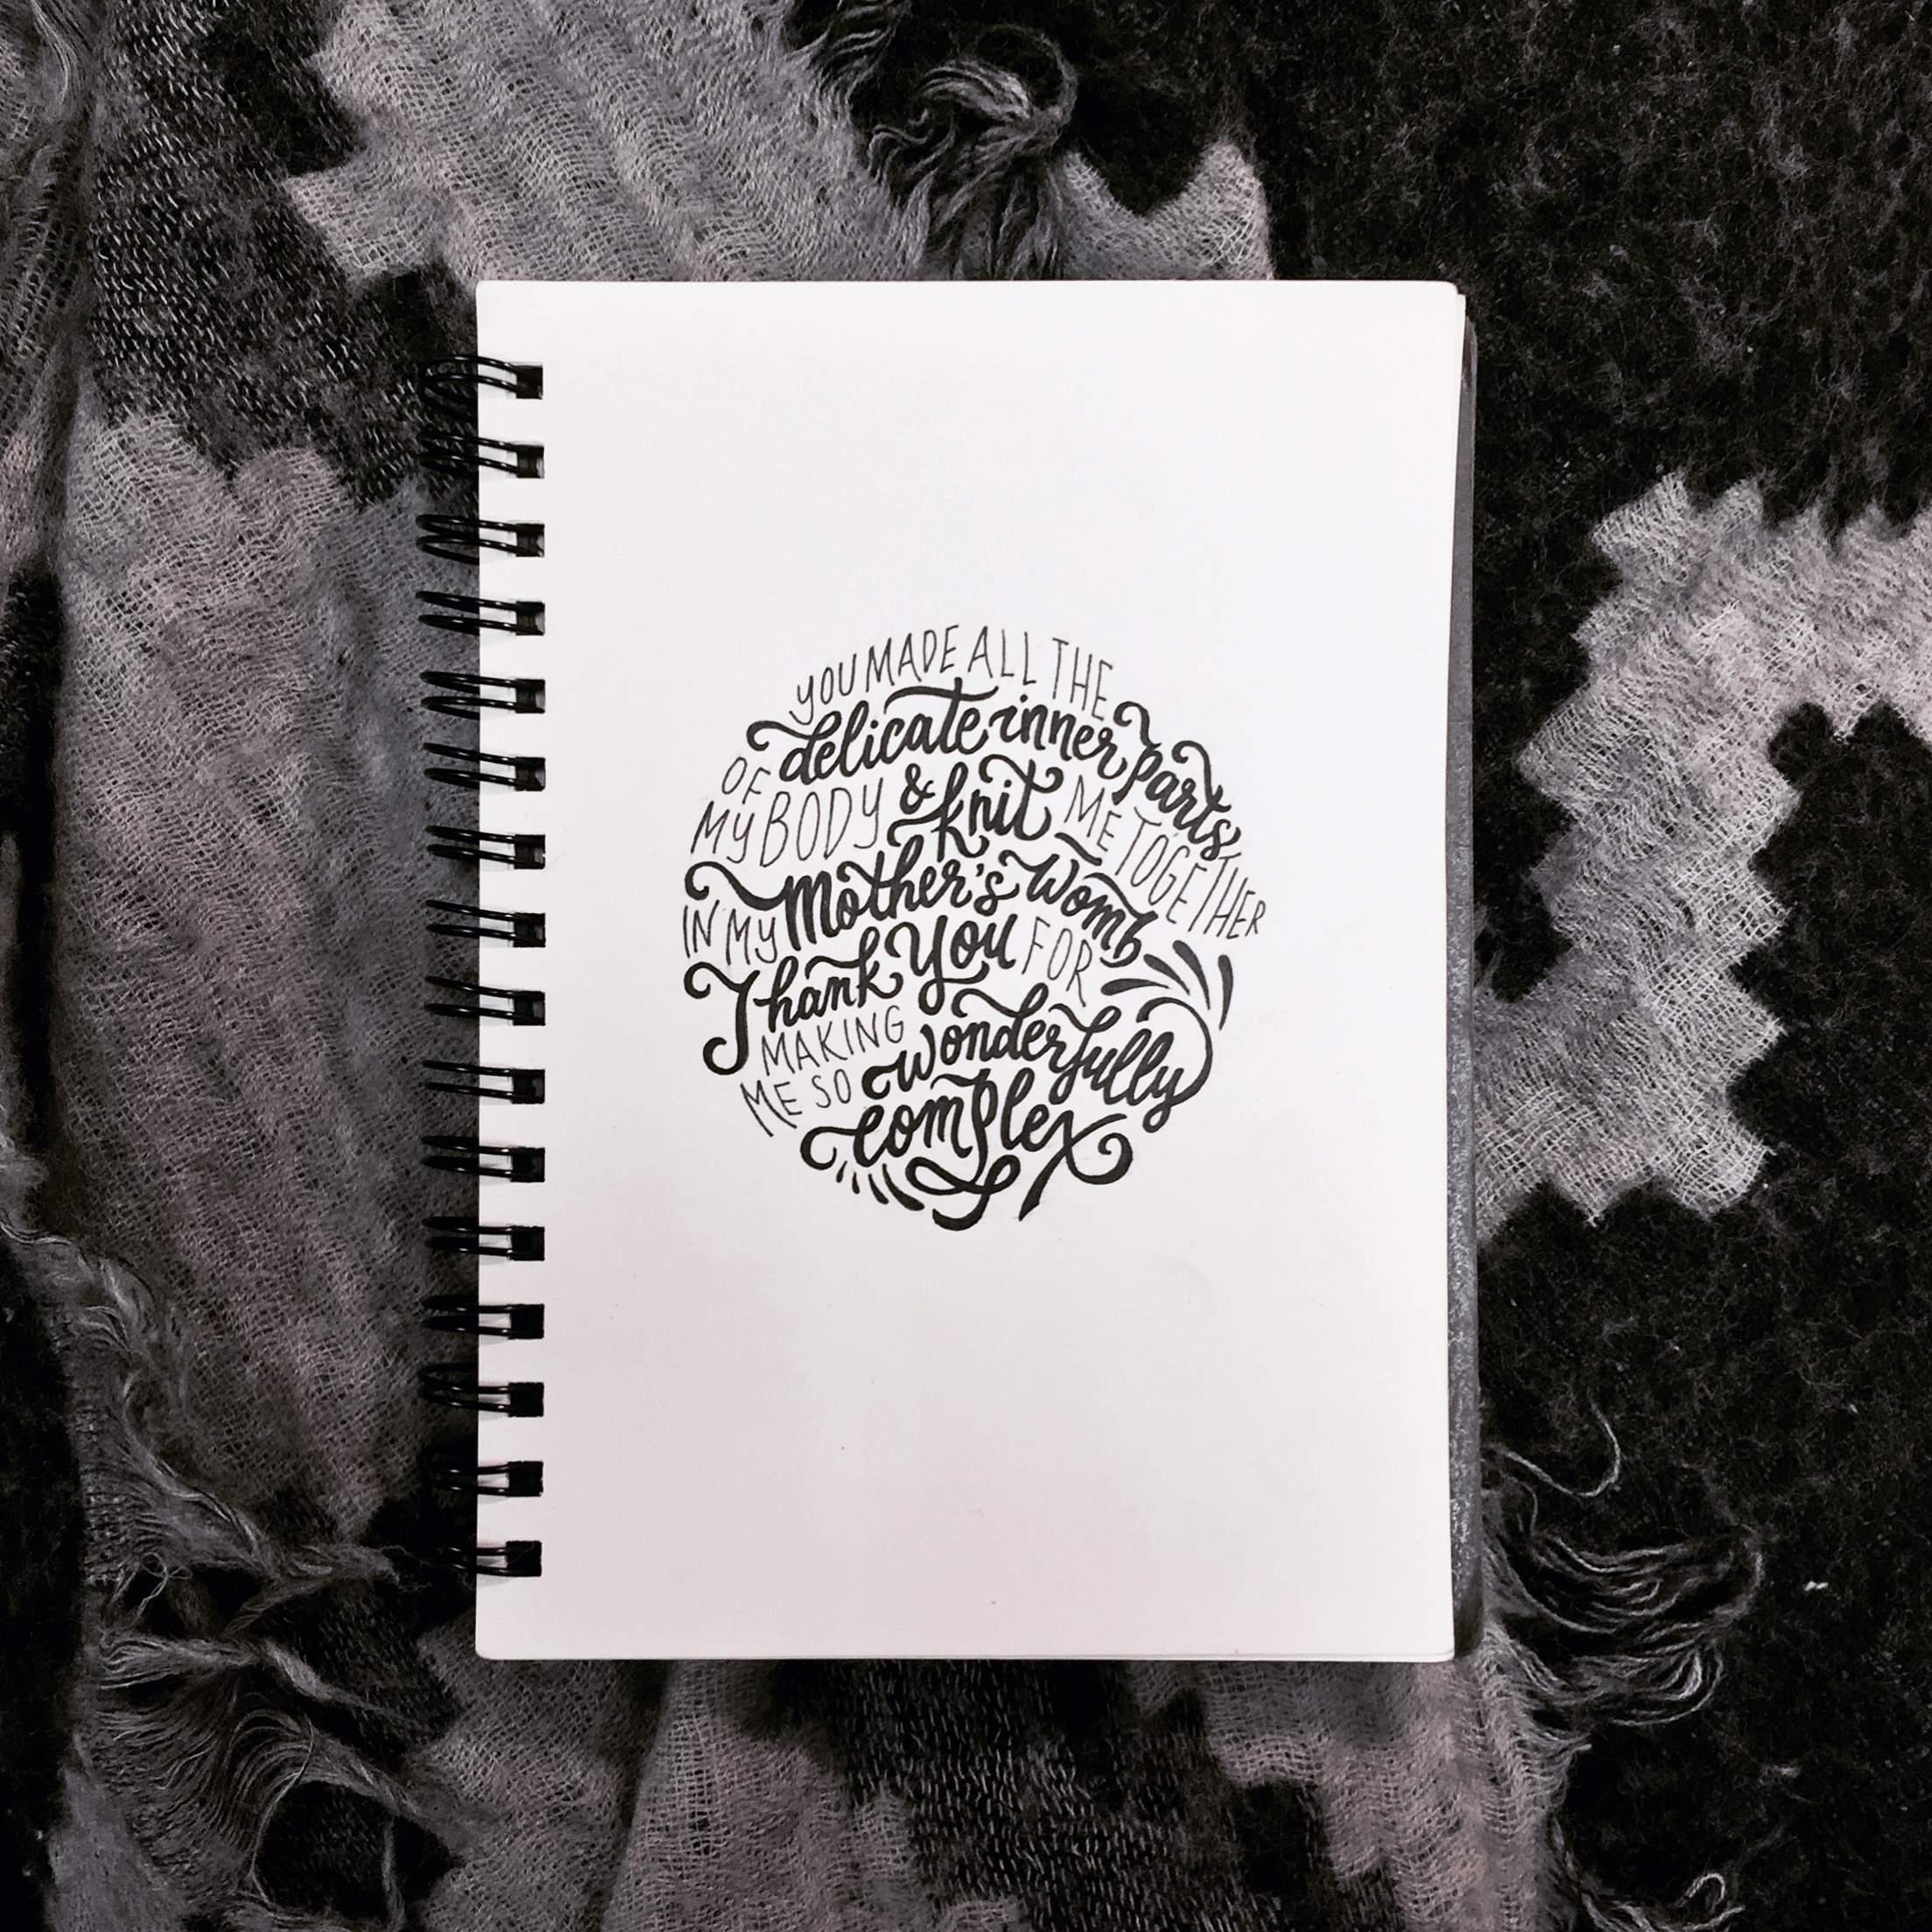 YOU MADE ALL THE
delicate inner parts
OF MY BODY & knit ME TOGETHER
IN MY Mother's Womb
Thank You FOR
MAKING
ME SO wonderfully
complex